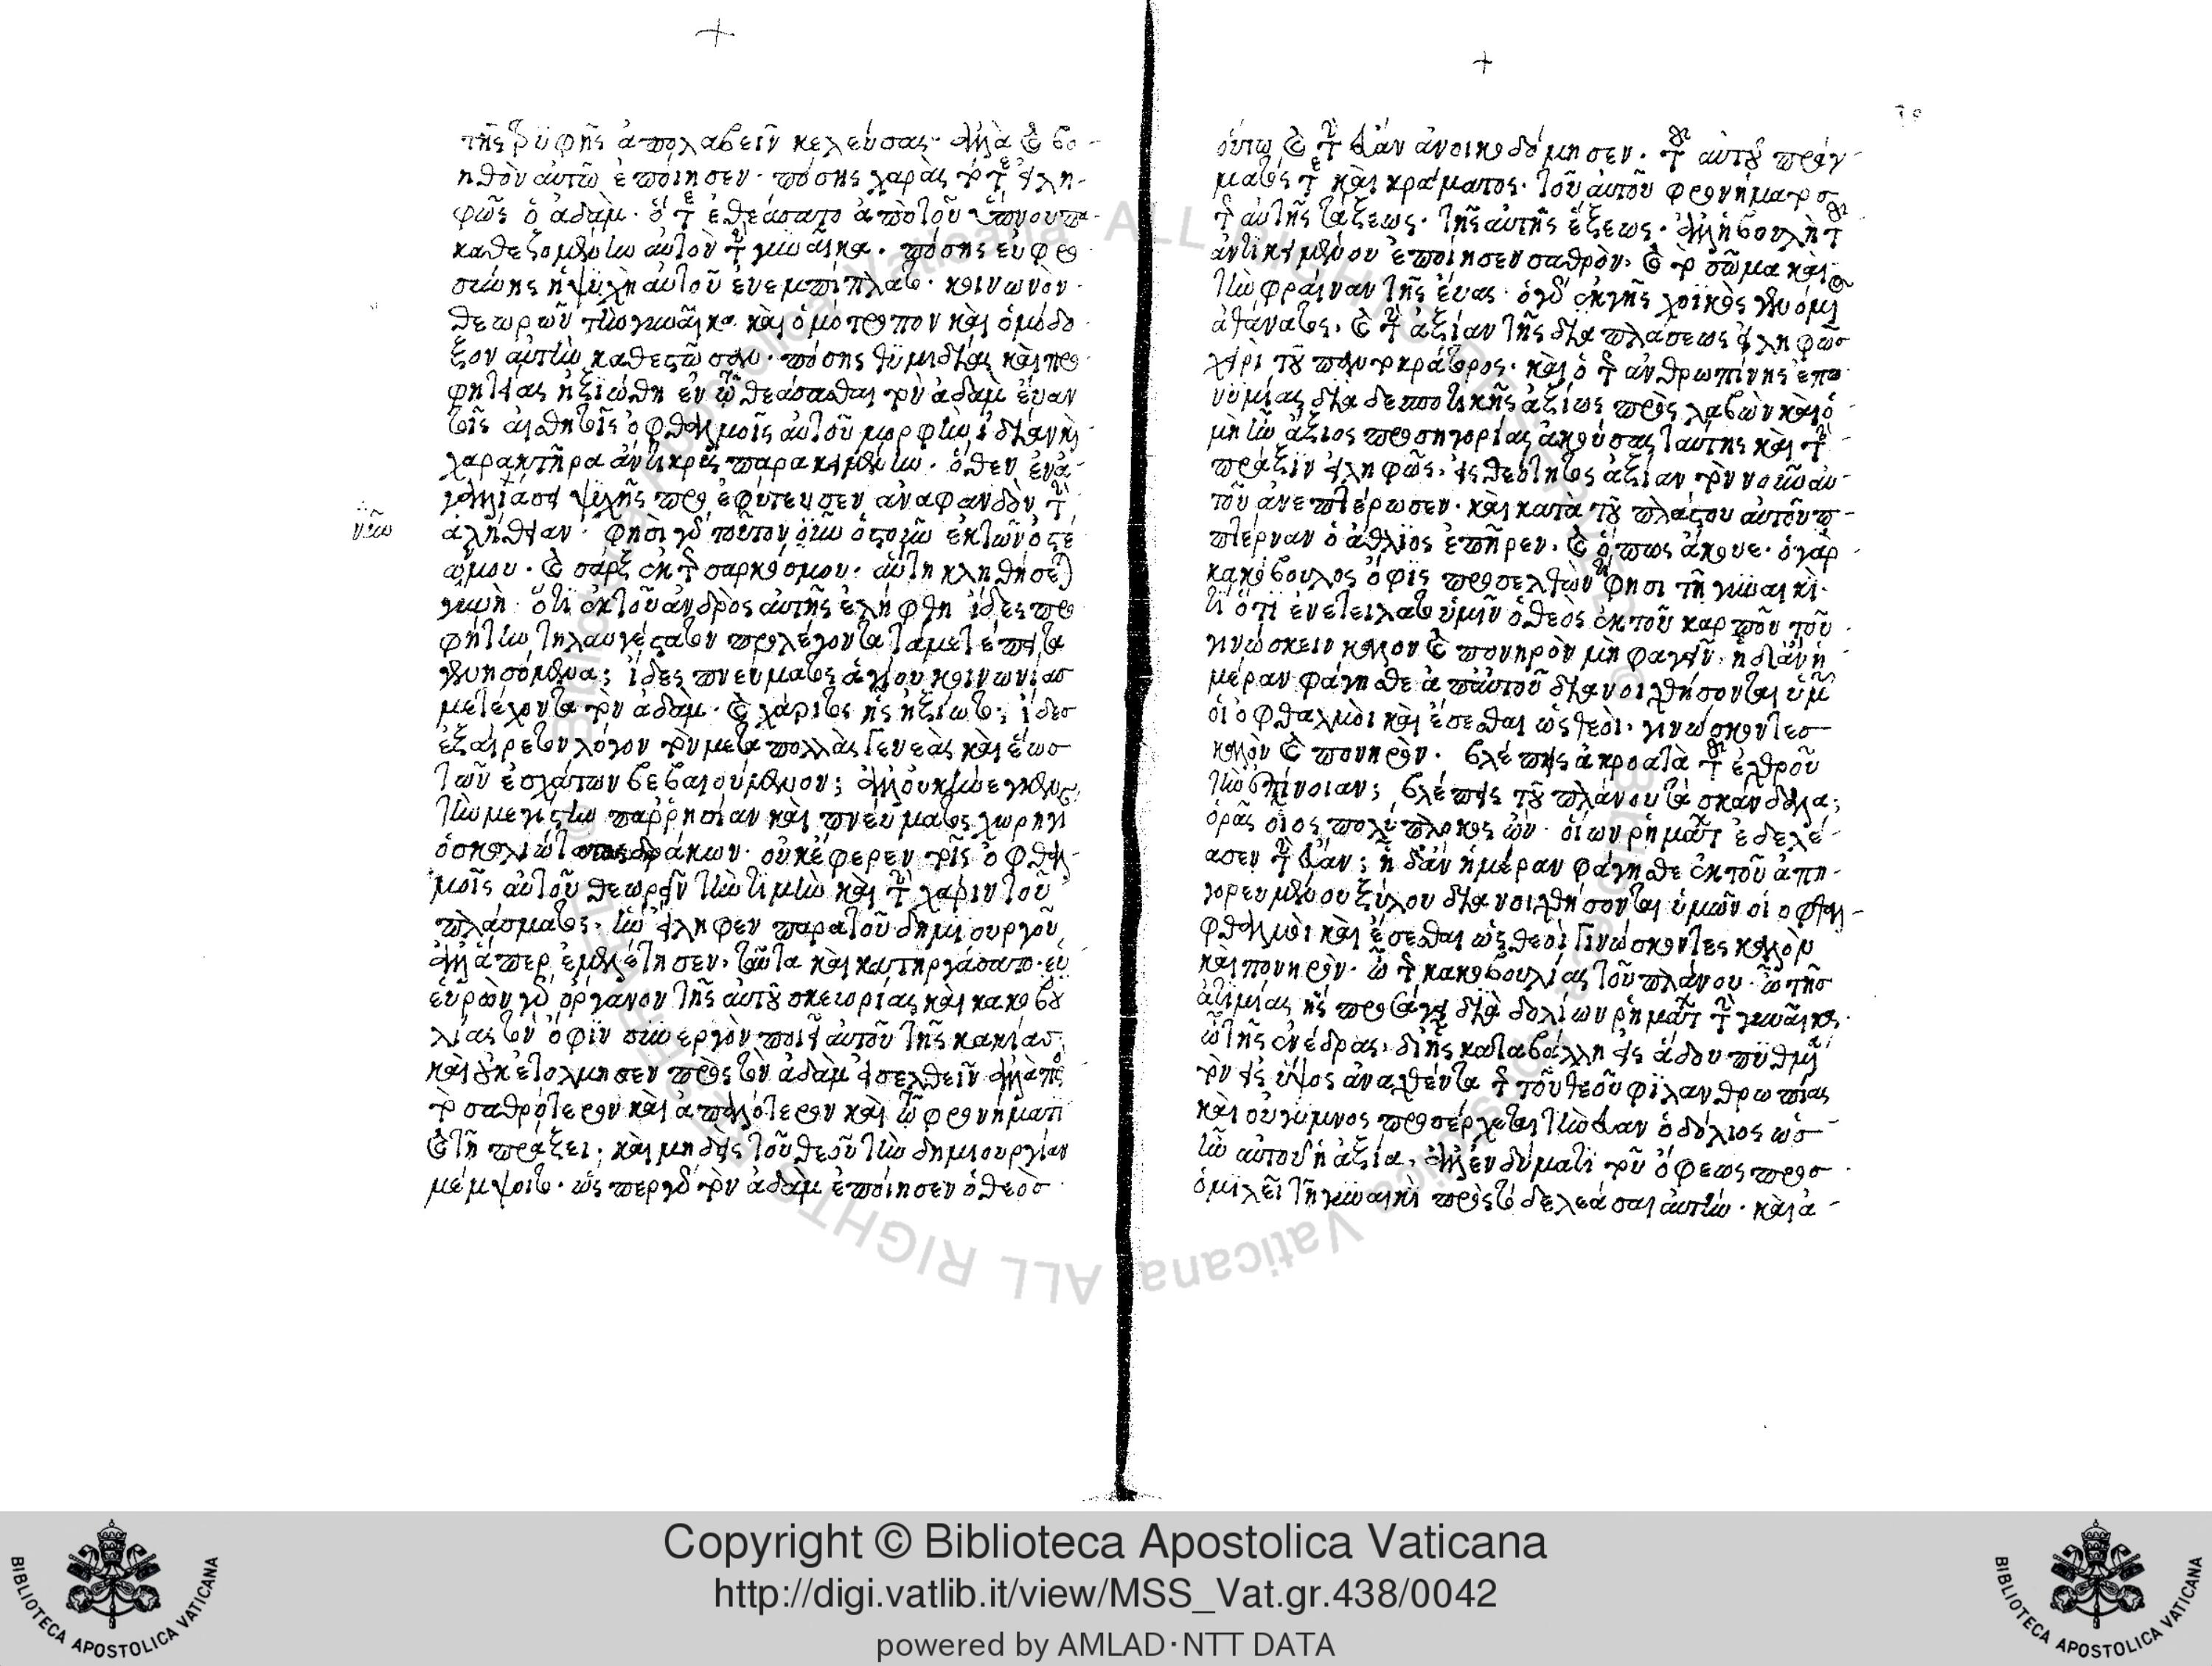 τῆς τρυφῆς ἀπολαβεῖν κελεύσας· ἀλλὰ καὶ βο
ηθὸν αὐτῶ ἐποίησεν· πόσης χαρὰς τότε εἰλη
φῶς ὁ ἀδὰμ· ὅτε ἐθεάσατο ἀπὸ τοῦ ὕπνου πα
καθεζομένην αὐτοῦ τὴν γυναῖκα· πόσης εὐφρο
σύνης ἡ ψυχὴ αὐτοῦ ἐνεμπίπλατο· κοινωνὸν
θεωρῶν τὴν γυναῖκα καὶ ὁμότροπον καὶ ὁμόδο
ξον αὐτὴν καθεστῶσαν· πόσης θυμιδίας καὶ προ
φητείας ἠξιώθη ἐν τῶ θεάσασθαι τὸν ἀδὰμ εὔαν
τοῖς αἰσθητοῖς ὀφθαλμοῖς αὐτοῦ μορφὴν
χαρακτῆρα ἀντικρὺς παρακειμένην· ὅθεν
ψυχῆς ἐφύτευσεν ἀναφανδὸν τὴν
ἀλήθειαν· φησὶ γὰρ τοῦτο νῦν ὀστοῦν ἐκ τῶν ὀστέ
ων μου· καὶ σὰρξ ἐκ τῆς σαρκός μου· αὕτη κληθήσεται
γυνὴ· ὅτι ἐκ τοῦ ἀνδρὸς αὐτῆς ἐλήφθη ἴδες προ
φήτην τηλαυγέστατον προλέγοντα τὰ μετέπειτα
γενησόμενα; ἴδες πνεύματος ἁγίου κοινωνίας
μετέχοντα τὸν ἀδὰμ· καὶ χάριτος ἧς ἠξιώτο; ἴδες
ἐξαίρετον λόγον τὸν μετὰ πολλὰς γενεὰς καὶ ἕως
τῶν ἐσχάτων βεβαιούμενον; ἀλλ' οὐκ
τὴν μεγίστην παρρησίαν καὶ πνεύματος χωρηγι
ὁ σκολιώτατος δράκων· οὐκ ἔφερεν τοῖς ὀφθαλ
μοῖς αὐτοῦ θεωρεῖν τὴν τιμὴν καὶ τὴν χάριν τοῦ
πλάσματος· ἣν εἴληφεν παρὰ τοῦ δημιουργοῦ
ἀλλ' ἅπερ ἐμελέτησεν, ταῦτα καὶ κατηργάσατο· εὖ
εὑρὼν γὰρ ὄργανον τῆς αὐτοῦ σκευορίας καὶ κακοβου
λίας τὸν ὄφιν συνεργὸν ποιεῖ αὐτοῦ τῆς κακίας
καὶ οὐκ ἐτόλμησεν πρὸς τὸν ἀδὰμ εἰσελθεῖν ἀλλὰ πρὸς
τὸ σαθρότερον καὶ ἁπαλότερον καὶ τῶ φρονήματι
καὶ τῆ πράξει· καὶ μηδεὶς τοῦ θεοῦ τὴν δημιουργίαν
μέμψοιτο· ὥσπερ γὰρ τὸν ἀδὰμ ἐποίησεν ὁ θεὸς
νῦν
οὕτω καὶ τὴν εὔαν ἀνοικοδόμησεν· τοῦ αὐτοῦ πράγ
ματος καὶ κράματος· τοῦ αὐτοῦ φρονήματος
τῆς αὐτῆς τάξεως· τῆς αὐτῆς ἕξεως· ἀλλ' ἡ βουλὴ τοῦ
ἀντικειμένου ἐποίησεν σαθρὸν· καὶ τὸ σῶμα καὶ
τὴν φρᾶιναν τῆς εὔας· ὁ γὰρ ἐκ γῆς χοϊκὸς
ἀθάνατος, καὶ τὴν ἀξίαν τῆς διαπλάσεως εἰληφῶς
χειρὶ τοῦ παντοκράτορος· καὶ ὁ τῆς ἀνθρωπίνης ἐπω
νυμίας διὰ δεσποτικῆς ἀξίως προσλαβὼν καὶ ὁ
μὴ ὢν ἄξιος προσηγορίας ἀκούσας ταύτης καὶ τὴν
πρᾶξιν εἰληφῶς, εἰς θεότητος ἀξίαν τὸν νοῦν αὐ
τοῦ ἀνεπτέρωσεν· καὶ κατὰ τοῦ πλάστου αὐτοῦ
πτέρναν ὁ ἄθλιος ἐπῆρεν· καὶ ὅπως ἄκουε· ὁ γὰρ
κακόβουλος ὄφις προσελθὼν φησι τῆ γυναικὶ·
τί ὅτι ἐνετείλατο ὑμῖν ὁ θεὸς ἐκ τοῦ καρποῦ τοῦ
γινώσκειν καλὸν καὶ πονηρὸν μὴ φαγεῖν· ἡ δ' ἂν ἡ
μέραν φάγησθε ἀπ' αὐτοῦ διανοιχθήσονται ὑμῶν
οἱ ὀφθαλμοὶ καὶ ἔσεσθαι ὡς θεοὶ· γινώσκοντες
καλὸν καὶ πονηρὸν· βλέπεις ἀκροατὰ τοῦ ἐχθροῦ
τὴν ἐπίνοιαν; βλέπεις τοῦ πλάνου τὰ σκάνδαλα;
ὁρᾶς οἷος πολύπλοκος ὢν· οἵων ῥημάτων ἐδελέ
ασεν τὴν εὔαν; ἧ δ' ἂν ἡμέραν φάγησθε ἐκ τοῦ ἀπη
γορευμένου ξύλου διανοιχθήσονται ὑμῶν οἱ οφθαλ
φθαλμοὶ καὶ ἔσεσθαι ὡς θεοὶ γινώσκοντες καλὸν
καὶ πονηρὸν· ὢ τῆς κακοβουλίας τοῦ πλάνου· ὢ τῆς
ἀτιμίας ἧς προσάγει διὰ δολίων ῥημάτων τὴν γυναῖκα·
ὢ τῆς ἐνέδρας· δι' ἧς καταβάλλη εἰς ἅδου πυθμένα
τὸν εἰς ὕψος ἀναχθέντα τῆς τοῦ θεοῦ φιλανθρωπίας
καὶ οὐ γυμνὸς προσέρχεται τὴν εὔαν ὁ δόλιος ὡς
ἦν αὐτοῦ ἡ ἀξία, ἀλλ' ἐνδύματι τοῦ ὄφεως προσ
ὁμιλεῖ τῆ γυναικὶ πρὸς τὸ δελεάσαι αὐτὴν· καὶ ἀ
Copyright © Biblioteca Apostolica Vaticana
http://digi.vatlib.it/view/MSS_Vat.gr.438/0042
powered by AMLAD·NTT DATA
BIBLIOTECA APOSTOLICA VATICANA
BIBLIOTECA APOSTOLICA VATICANA